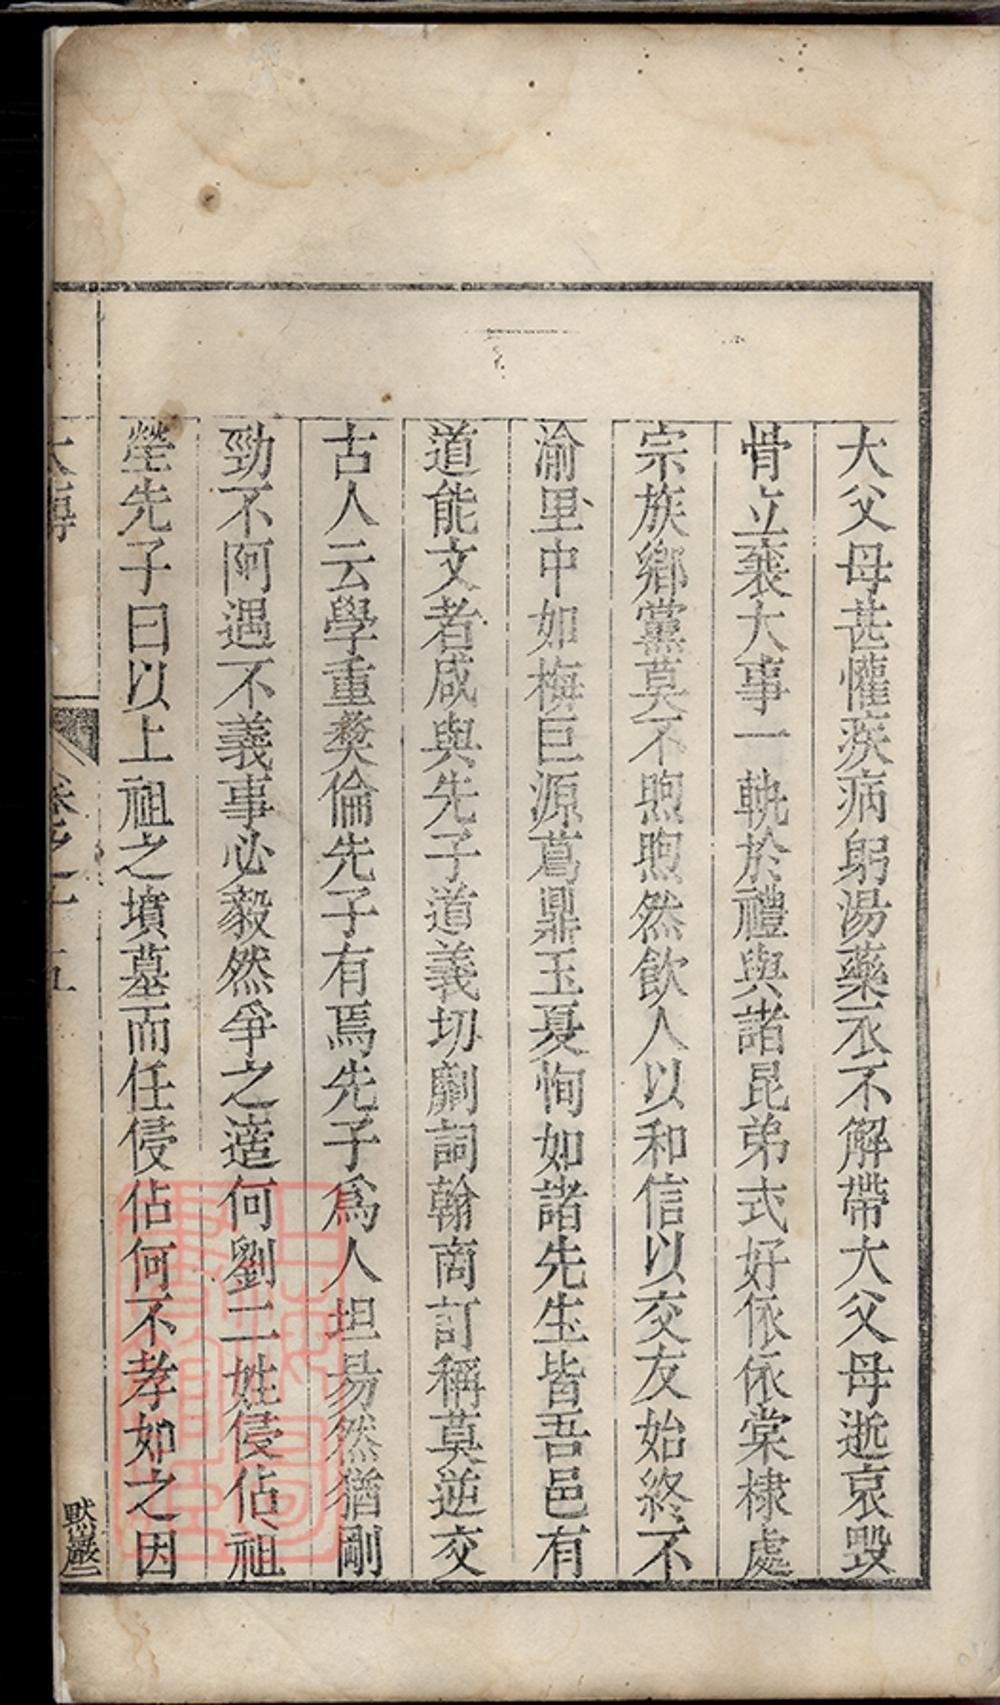 大父母甚懽疾病躬湯藥衣不解帶大父母逝哀毀
骨立襄大事一軌於禮與諸昆弟式好依依棠棣處
宗族鄉黨莫不煦煦然飲人以和信以交友始終不
渝里中如梅巨源蔦鼎玉夏恂如諸先生皆吾邑有
道能文者咸與先子道義切劘詞翰商訂稱莫逆交
古人云學重彜倫先子有焉先子爲人坦易然猶剛
勁不阿遇不義事必毅然爭之適何劉二姓侵佔祖
塋先子曰以上祖之墳墓而任侵佔何不孝如之因
大傳
卷之十五
默巖